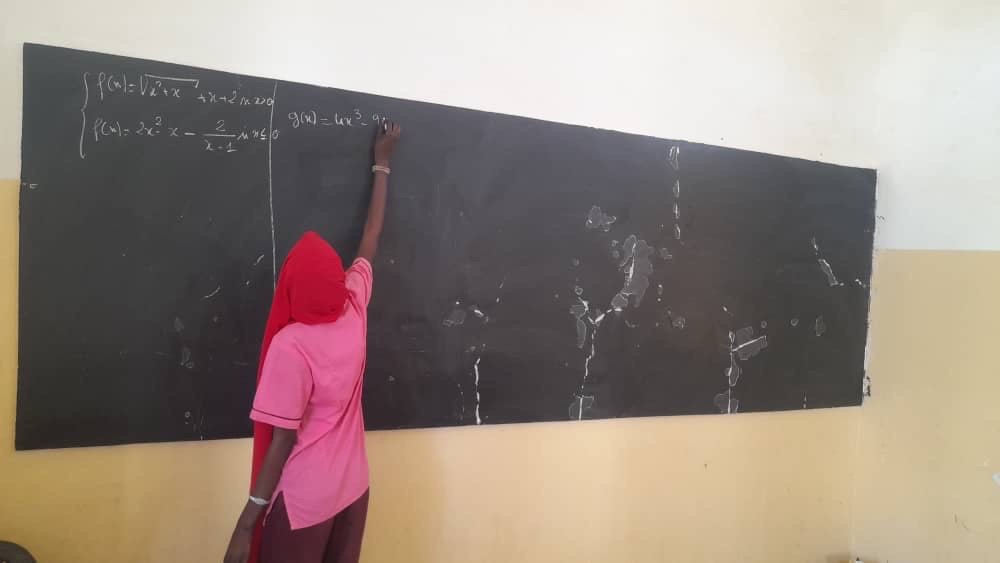 f(x) = √x²+x + x + 2 si x>0
f(x) = 2x² - x - 2/(x-1) si x≤0
g(x) = 4x³ - 9